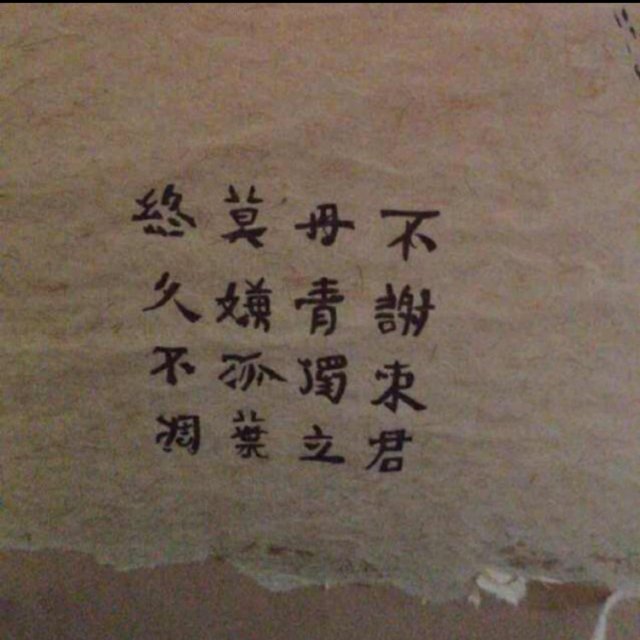 不謝東君
丹青獨立
莫嫌孤葉
終久不凋